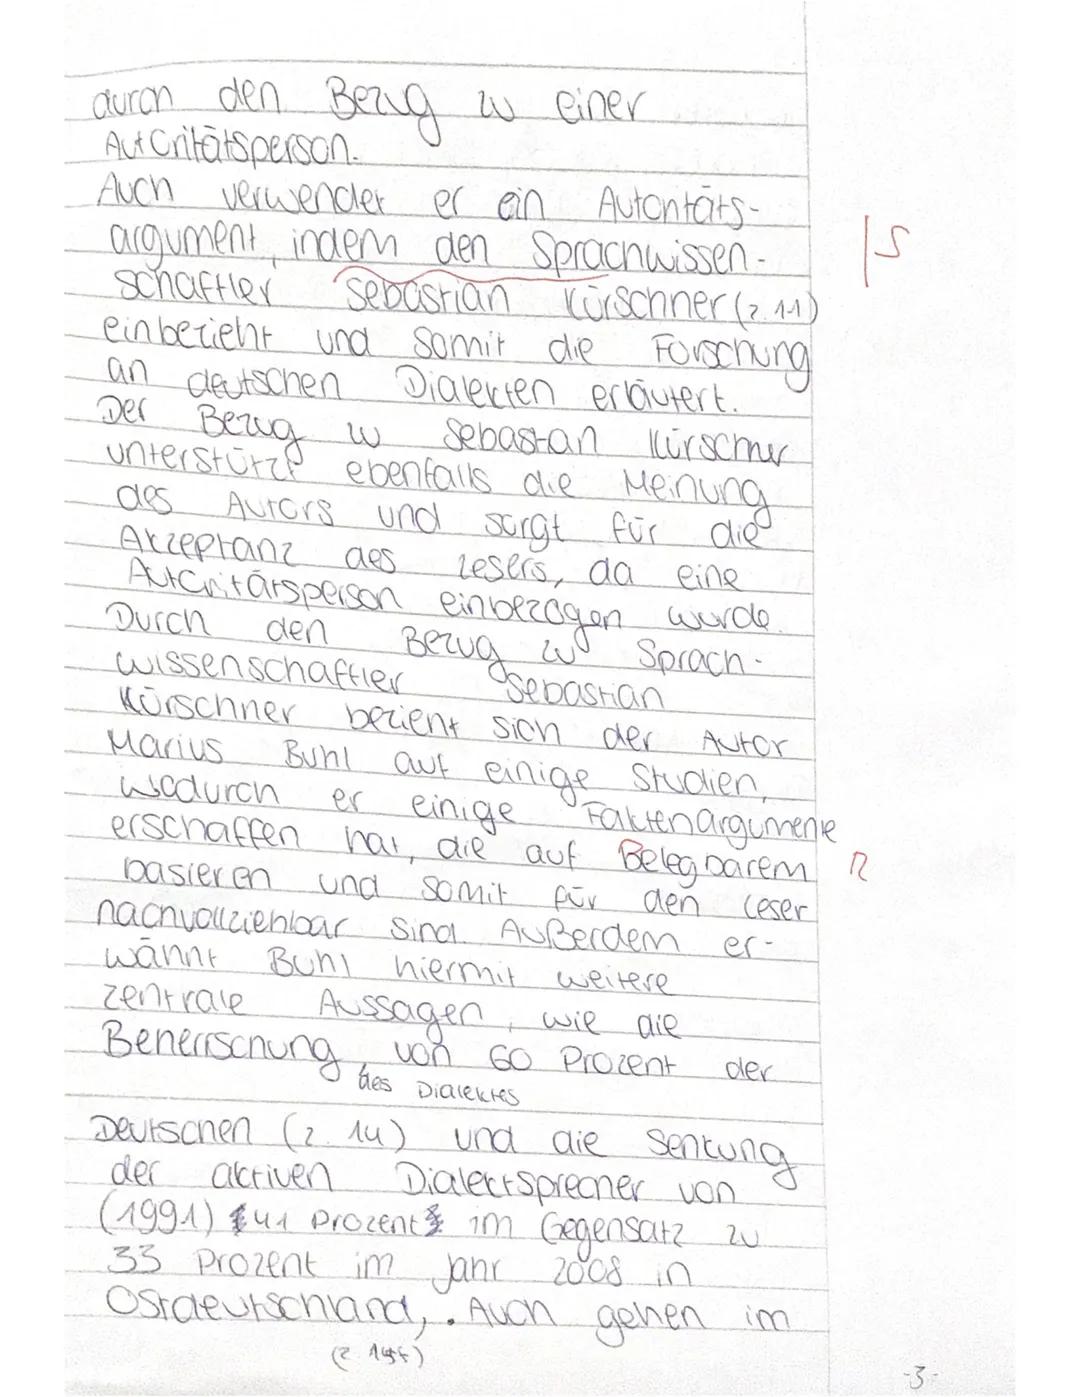 durch den Bezug zu einer
Autoritätsperson.
Auch verwendet er ein Autoritäts-
argument, indem den Sprachwissen- |S
schaftler Sebastian Kürschner (Z. 11)
einbezieht und somit die Forschung
an deutschen Dialekten erläutert.
Der Bezug zu Sebastian Kürschner
unterstützt ebenfalls die Meinung
des Autors und sorgt für die
Akzeptanz des Lesers, da eine
Autoritätsperson einbezogen wurde.
Durch den Bezug zu Sprach-
wissenschaftler Sebastian
Kürschner bezieht sich der Autor
Marius Buhl auf einige Studien,
wodurch er einige Faktenargumente
erschaffen hat, die auf Belegbarem R
basieren und somit für den Leser
nachvollziehbar sind. Außerdem er-
wähnt Buhl hiermit weitere
zentrale Aussagen, wie die
Beherrschung von 60 Prozent der
des Dialektes
Deutschen (Z. 14) und die Senkung
der aktiven Dialektsprecher von
(1991) 41 Prozent im Gegensatz zu
33 Prozent im Jahr 2008 in
Ostdeutschland,. Auch gehen im
-3-